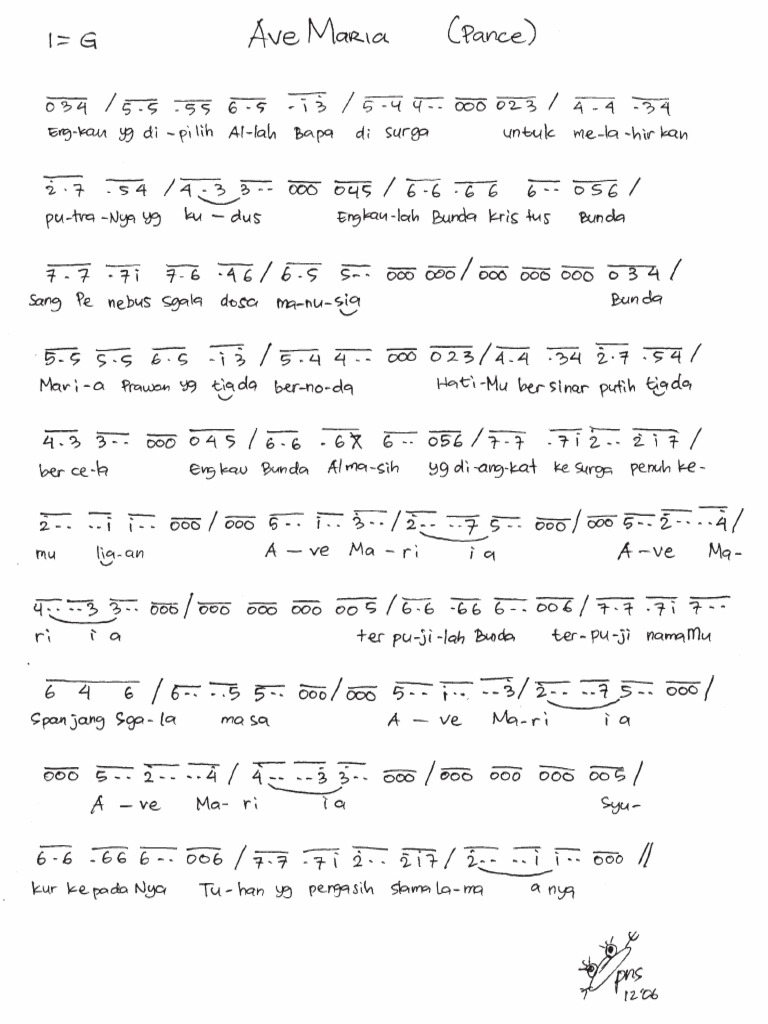 1= G AVE MARIA (Pance)
034 / 5.5 .55 6.5 .i̇3̇ / 5.4 4.. 000 023 / 4.4 .34
Eng-kau yg di-pilih Al-lah Bapa di surga untuk me-la-hirkan
2̇.7 .54 / 4.3 3.. 000 045 / 6.6 .66 6.. 056 /
pu-tra-Nya yg ku-dus Engkau-lah Bunda Kristus Bunda
7.7 .7i̇ 7.6 .46 / 6.5 5.. 000 000 / 000 000 000 034 /
Sang Pe nebus sgala dosa ma-nu-sia Bunda
5.5 5.5 6.5 .i̇3̇ / 5.4 4.. 000 023 / 4.4 .34 2̇.7 .54 /
Mari-a Prawan yg tiada ber-no-da Hati-Mu bersinar putih tiada
4.3 3.. 000 045 / 6.6 .6 6.. 056 / 7.7 .7i̇ 2̇.. 2̇i̇7 /
ber ce-la Engkau Bunda Alma-sih yg di-ang-kat ke surga penuh ke-
2̇.. ..i̇ i̇.. 000 / 000 5.. i̇.. 3̇.. / 2̇.. ..7 5.. 000 / 000 5.. 2̇.. ..4̇ /
mu lia-an A-ve Ma-ri ia A-ve Ma-
4̇.. ..3̇ 3̇.. 000 / 000 000 000 005 / 6.6 .66 6.. 006 / 7.7 .7i̇ 7..
ri ia ter pu-ji-lah Bunda ter-pu-ji namaMu
6 4 6 / 6.. ..5 5.. 000 / 000 5.. i̇.. ..3̇ / 2̇.. ..7 5.. 000 /
Spanjang Sga-la masa A-ve Ma-ri ia
000 5.. 2̇.. ..4̇ / 4̇.. ..3̇ 3̇.. 000 / 000 000 000 005 /
A-ve Ma-ri ia Syu-
6.6 .66 6.. 006 / 7.7 .7i̇ 2̇.. 2̇i̇7 / 2̇.. ..i̇ i̇.. 000 //
kur kepadaNya Tu-han yg pengasih slamala-ma anya
pns
12'06